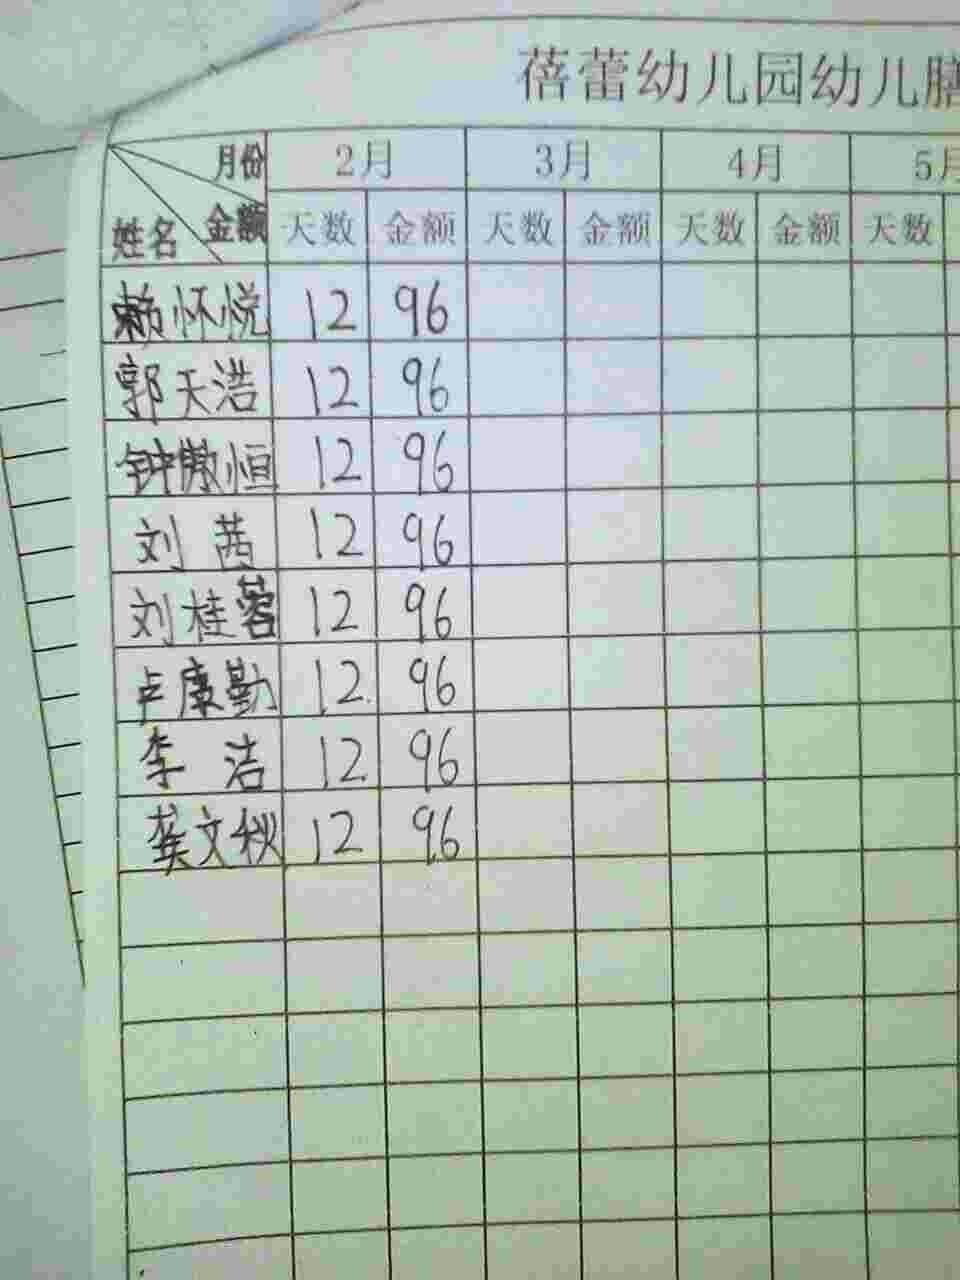 蓓蕾幼儿园幼儿膳
月份 2月 3月 4月 5月
姓名 金额 天数 金额 天数 金额 天数 金额 天数
赖怀悦 12 96
郭天浩 12 96
钟傲恒 12 96
刘茜 12 96
刘桂蓉 12 96
卢康勤 12 96
李洁 12 96
龚文秋 12 96